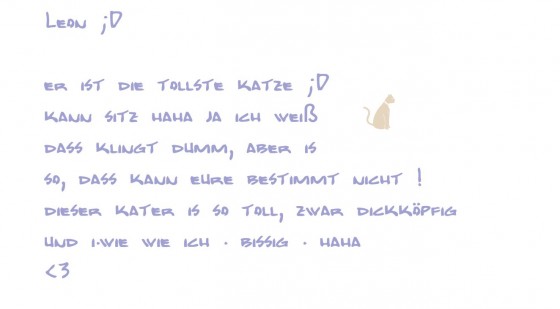 Leon ;D
er ist die tollste Katze ;D
kann sitz haha ja ich weiß
dass klingt dumm, aber is
so, dass kann eure bestimmt nicht !
dieser Kater is so toll, zwar dickköpfig
und i.wie wie ich . bissig . haha
<3